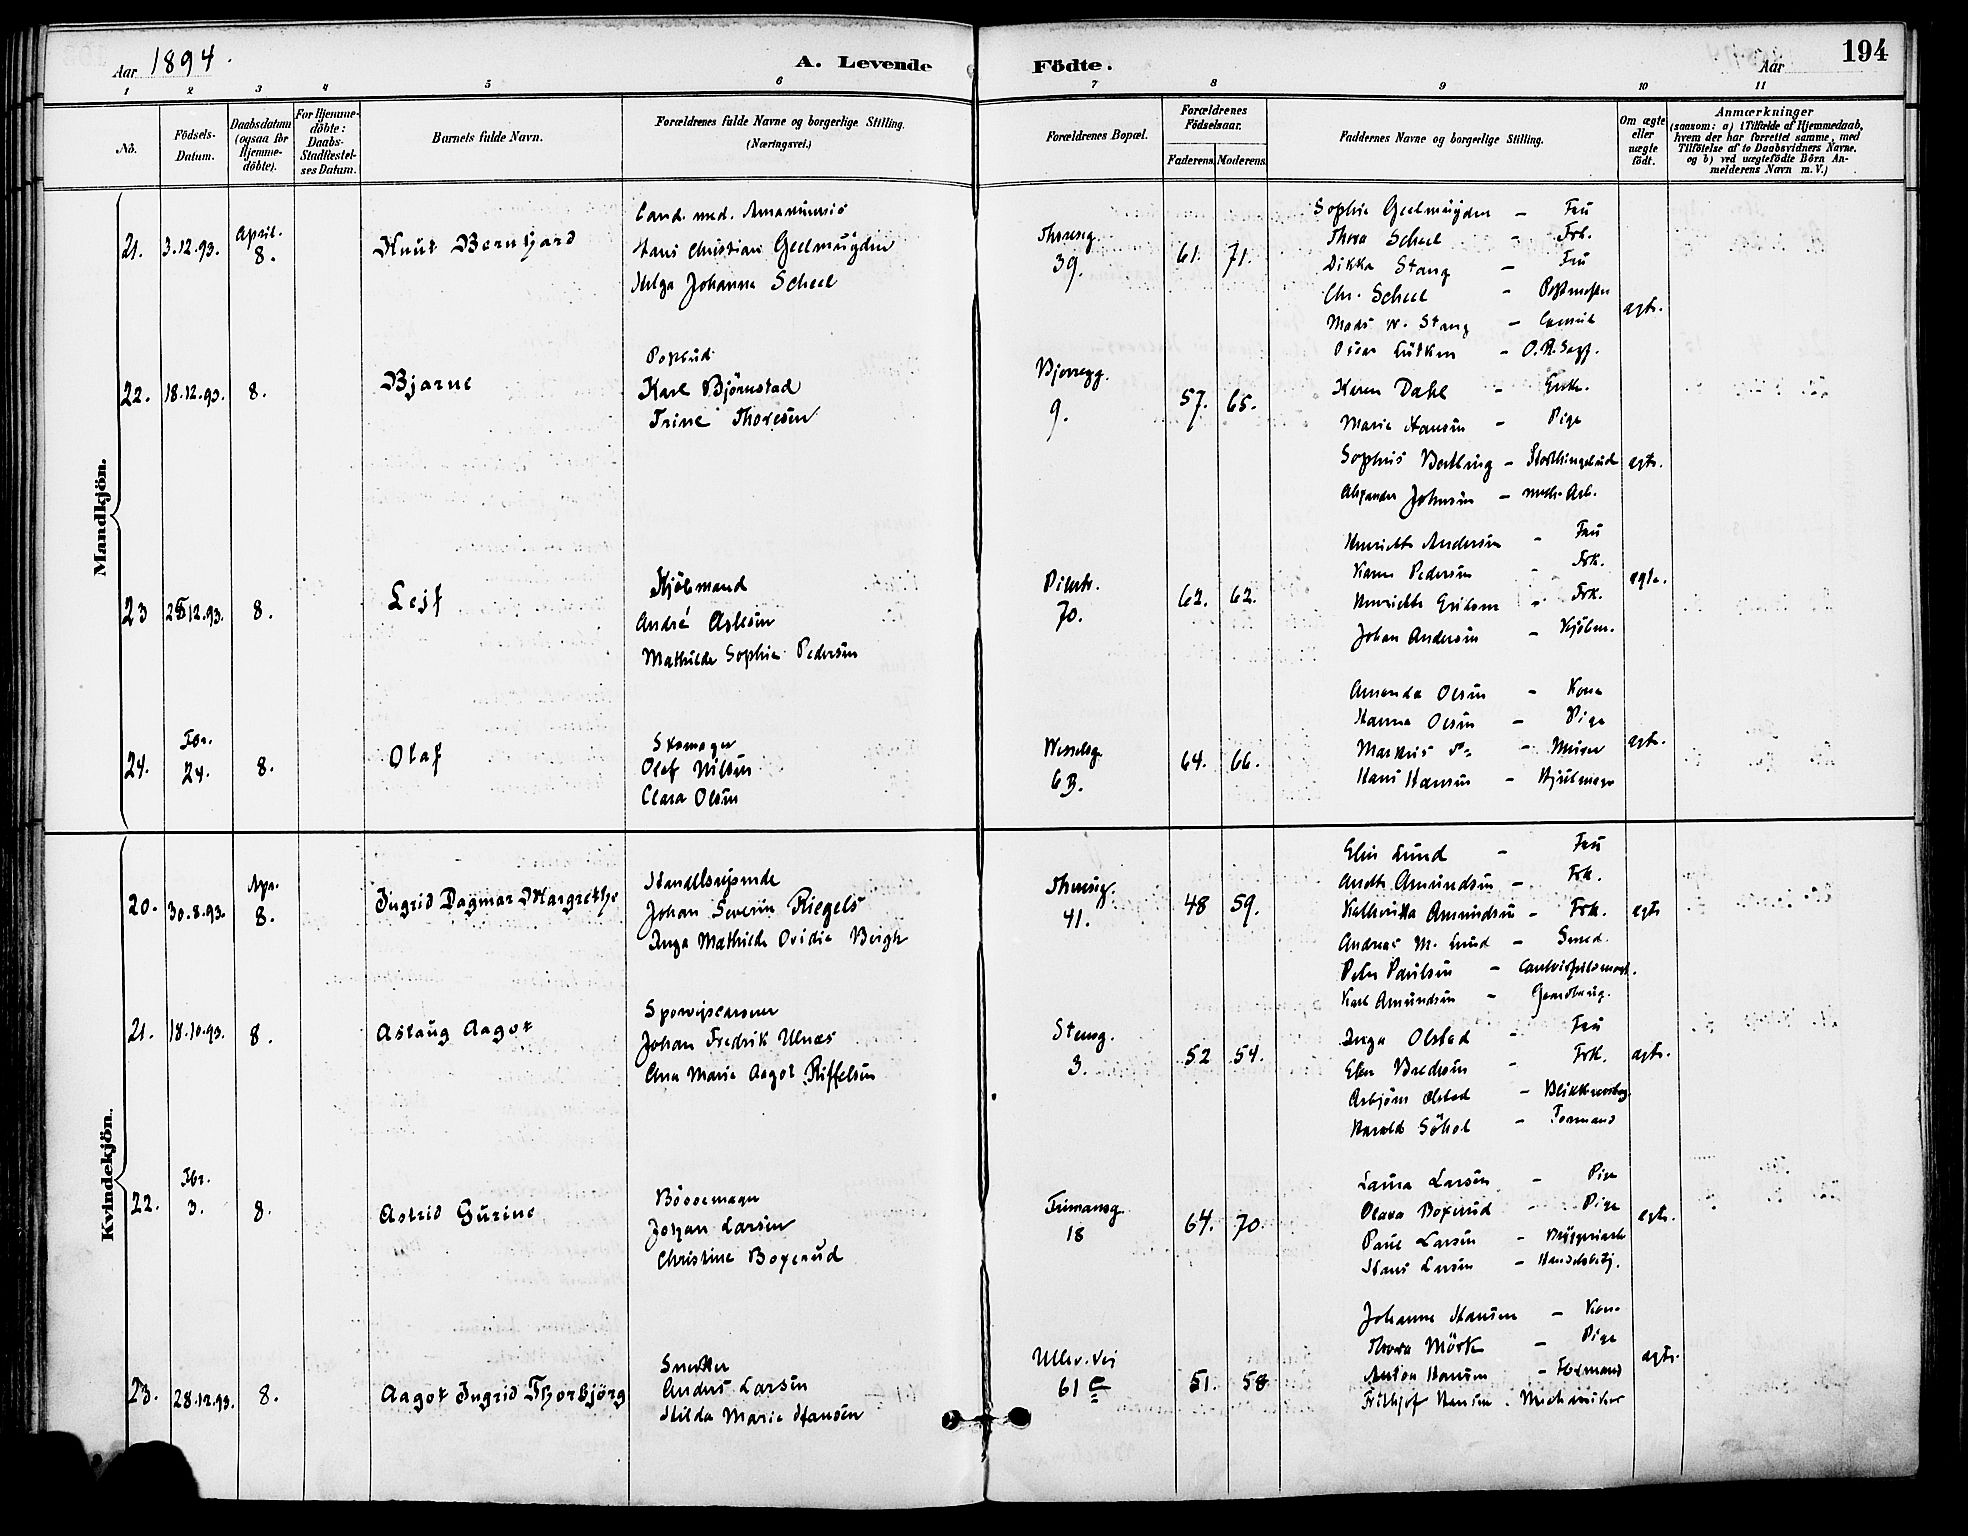 Aar 1894.
A. Levende Födte.
Aar
194
1 2 3 4 5 6 7 8 9 10 11
No.
Födsels-Datum.
Daabsdatum (ogsaa for Hjemme-döbte).
For Hjemme-döbte: Daabs-Stadfæstel-ses Datum.
Barnets fulde Navn.
Forældrenes fulde Navne og borgerlige Stilling.
(Næringsvei.)
Forældrenes Bopæl.
Forældrenes Födselsaar.
Faderens. Moderens.
Faddernes Navne og borgerlige Stilling.
Om ægte eller uægte födt.
Anmærkninger
(saasom: a) i Tilfælde af Hjemmedaab, hvem der har forrettet samme, med Tilföielse af to Daabsvidners Navne. og b) ved uægtefödte Börn An-melderens Navn m. V.)
Mandkjön.
21. 3.12.93. April. 8. Knut Berntjard
Cand. med. Amanuensis
Hans Christian Geelmuyden
Helga Johanne Scheel
Theresesg. 39. 61. 71.
Sophie Geelmuyden - Fru
Thora Scheel - Frk.
Dikka Stang - Fru
Chr. Scheel - Postmester
Mads W. Stang - Consul
Oscar Lütken - O.R.Sagf.
ægte.
22. 18.12.93. 8. Bjarne
Postbud
Karl Björnstad
Trine Thoresen
Bjerregg. 9. 57. 65.
Karen Dahl - Enke.
Marie Hansen - Pige
Sophus - Storthingsbud
Alexander Johnsen - Arb.
ægte.
23 28.12.93. 8. Leif
Kjöbmand
André Aslesen
Mathilde Sophie Pedersen
Pilestr. 70. 62. 62.
Henriette Andersen - Fru
Karen Pedersen - Frk.
Henriette - Frk.
Johan Andersen - Kjöbm.
ægte.
24. Fbr. 24. 8. Olaf
Skomager
Olaf Nilsen
Clara Olsen
Wesselsg. 63. 64. 66.
Amanda Olsen - Kone
Hanna Olsen - Pige
Markus Do - Murer
Hans Hansen - Hjulmager
ægte.
Kvindekjön.
20. 30.8.93. Apr. 8. Ingrid Dagmar Margrethe
Handelsrejsende
Johan Severin Riegels
Inga Mathilde Ovidia Bergh
Theresesg. 41. 48 59.
Elin Lund - Fru
Amundsen - Frk.
Kathinka Amundsen - Frk.
Andreas M. Lund - Smed.
Peter Paulsen -
Karl Amundsen - Gaardbrug.
ægte
21. 18.10.93. 8. Aslaug Aagot
Johan Fredrik Ulnæs
Ana Marie Aagot Riffelsen
Stensg. 3. 52 54.
Inga Olstad - Fru
Elen Bredesen - Frk.
Asbjörn Olstad -
Harald Söhol - Formand
ægte.
22. Fbr. 3. 8. Astrid Gurine
Bössemager
Johan Larsen
Christine Bogerud
Frimansg. 18 64. 70.
Laura Larsen - Pige
Olava Bogerud - Pige
Paul Larsen - Bryggeriarb
Hans Larsen - Handelsbetj.
ægte.
23. 28.12.93. 8. Aagot Ingrid Thorbjörg
Snedker
Anders Larsen
Hilda Marie Hansen
Ullev. vej 61 c 51. 58
Johanne Hansen - Kone
Thora Mörk - Pige
Anton Hansen - Formand
Frithjof Hansen - Mechaniker
ægte.